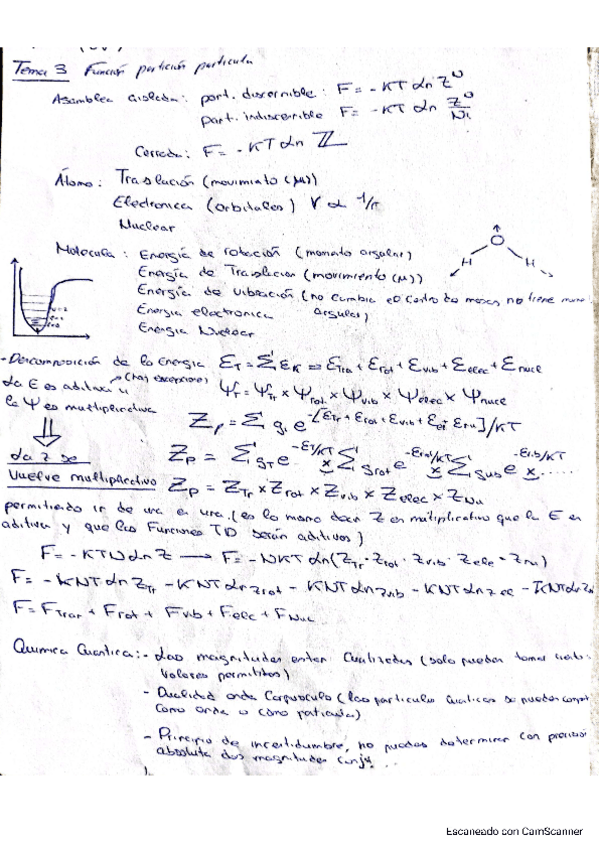 Tema 3 Función partición partícula
Asamblea aislada: part. discernible: F = -KT Ln Z^N
part. indiscernible F = -KT Ln Z^N/N!
Cerrada: F = -KT Ln Z
Átomo: Traslación (movimiento (μ))
Electronica (orbitales) V α 1/r
Nuclear
Molecula: Energía de rotación (momento angular)
Energía de Traslacion (movimiento (μ))
Energía de vibración (no cambia el centro de masas no tiene
angular)
Energia electronica
Energia Nuclear
O
H H
- Descomposición de la Energia E_T = Σ E_K = E_tra + E_rot + E_vib + E_elec + E_nuce
(hay excepciones)
La E es aditiva y
la Ψ es multiplicativa
Ψ_T = Ψ_Tr × Ψ_rot × Ψ_vib × Ψ_elec × Ψ_nuce
Z_p = Σ g_i e^-[E_Tr + E_rot + E_vib + E_el + E_nu]/KT
La z se
vuelve multiplicativo
Z_p = Σ g_T e^-E_T/KT × Σ g_rot e^-E_rot/KT × Σ g_vib e^-E_vib/KT × .....
Z_p = Z_Tr × Z_rot × Z_vib × Z_elec × Z_Nu
permitiendo ir de una en una. (es lo mismo decir Z en multiplicativo que la E en
aditiva y que las Funciones TD serán aditivas)
F = -KTN Ln Z → F = -NKT Ln (Z_Tr · Z_rot · Z_vib · Z_ele · Z_nu)
F = -KNT Ln Z_Tr - KNT Ln Z_rot - KNT Ln Z_vib - KNT Ln Z_el - KNT Ln Z_N
F = F_Tran + F_rot + F_vib + F_elec + F_Nuc
Quimica Cuantica: - Las magnitudes estan cuantizadas (solo pueden tomar ciertos
valores permitidos)
- Dualidad onda corpusculo (las particulas cuanticas se pueden
como onda o como particula)
- Principio de incertidumbre, no puedes determinar con precisión
absoluta dos magnitudes conj
Escaneado con CamScanner